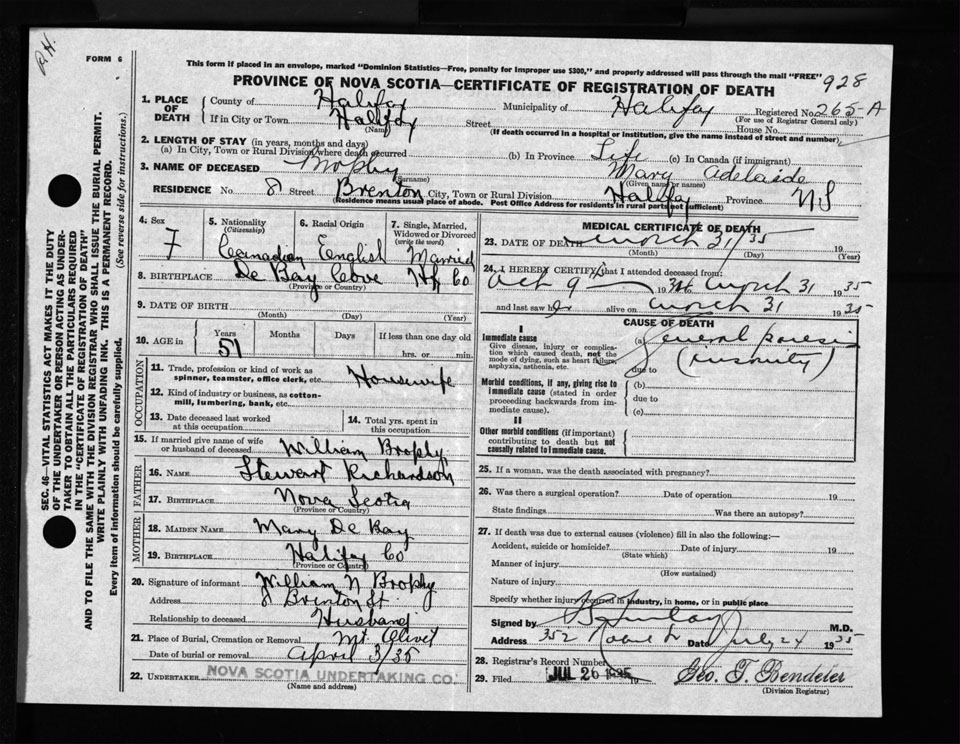 P.H.
FORM 6
This form if placed in an envelope, marked "Dominion Statistics—Free, penalty for improper use $300," and properly addressed will pass through the mail "FREE"
928
PROVINCE OF NOVA SCOTIA—CERTIFICATE OF REGISTRATION OF DEATH
1. PLACE OF DEATH County of Halifax Municipality of Halifax Registered No. 265-A
(For use of Registrar General only)
If in City or Town Halifax Street House No.
(Name) (If death occurred in a hospital or institution, give the name instead of street and number)
2. LENGTH OF STAY (in years, months and days)
(a) In City, Town or Rural Division where death occurred (b) In Province Life (c) In Canada (if immigrant)
3. NAME OF DECEASED Brophy Mary Adelaide
(Surname) (Given name or names)
RESIDENCE No. 8 Street Brenton City, Town or Rural Division Halifax Province NS
(Residence means usual place of abode. Post Office Address for residents in rural parts not sufficient)
SEC. 46—VITAL STATISTICS ACT MAKES IT THE DUTY
OF THE UNDERTAKER OR PERSON ACTING AS UNDER-
TAKER TO OBTAIN ALL THE PARTICULARS REQUIRED
IN THE "CERTIFICATE OF REGISTRATION OF DEATH"
AND TO FILE THE SAME WITH THE DIVISION REGISTRAR WHO SHALL ISSUE THE BURIAL PERMIT.
WRITE PLAINLY WITH UNFADING INK. THIS IS A PERMANENT RECORD.
Every item of information should be carefully supplied. (See reverse side for instructions.)
4. Sex 5. Nationality 6. Racial Origin 7. Single, Married,
(Citizenship) Widowed or Divorced
(write the word)
F Canadian English Married
8. BIRTHPLACE De Bay Cove Hfx Co
(Province or Country)
9. DATE OF BIRTH
(Month) (Day) (Year)
10. AGE in Years Months Days If less than one day old
51 hrs. or min.
OCCUPATION
11. Trade, profession or kind of work as
spinner, teamster, office clerk, etc. Housewife
12. Kind of industry or business, as cotton-
mill, lumbering, bank, etc.
13. Date deceased last worked
at this occupation
14. Total yrs. spent in
this occupation
15. If married give name of wife
or husband of deceased William Brophy
FATHER
16. NAME Stewart Richardson
17. BIRTHPLACE Nova Scotia
(Province or Country)
MOTHER
18. MAIDEN NAME Mary De Bay
19. BIRTHPLACE Halifax Co
(Province or Country)
20. Signature of informant William N Brophy
Address 8 Brenton St
Relationship to deceased Husband
21. Place of Burial, Cremation or Removal Mt Olivet
Date of burial or removal April 3/35
22. UNDERTAKER NOVA SCOTIA UNDERTAKING CO.
(Name and address)
MEDICAL CERTIFICATE OF DEATH
23. DATE OF DEATH March 31/35 19
(Month) (Day) (Year)
24. I HEREBY CERTIFY that I attended deceased from:
Oct 9 1934 to March 31 1935
and last saw her alive on March 31 1935
CAUSE OF DEATH
I
Immediate cause (a) General paresis
Give disease, injury or complica-
tion which caused death, not the
mode of dying, such as heart failure,
asphyxia, asthenia, etc.
due to (insanity)
Morbid conditions, if any, giving rise to
immediate cause (stated in order
proceeding backwards from im-
mediate cause).
(b)
due to
(c)
II
Other morbid conditions (if important)
contributing to death but not
causally related to immediate cause.
25. If a woman, was the death associated with pregnancy?
26. Was there a surgical operation? Date of operation 19
State findings Was there an autopsy?
27. If death was due to external causes (violence) fill in also the following:—
Accident, suicide or homicide? Date of injury 19
(State which)
Manner of injury
(How sustained)
Nature of injury
Specify whether injury occurred in industry, in home, or in public place
Signed by M.D.
Address 352 Date July 24 1935
28. Registrar's Record Number
29. Filed JUL 26 1935 19 Geo. T. Bendeler
(Division Registrar)